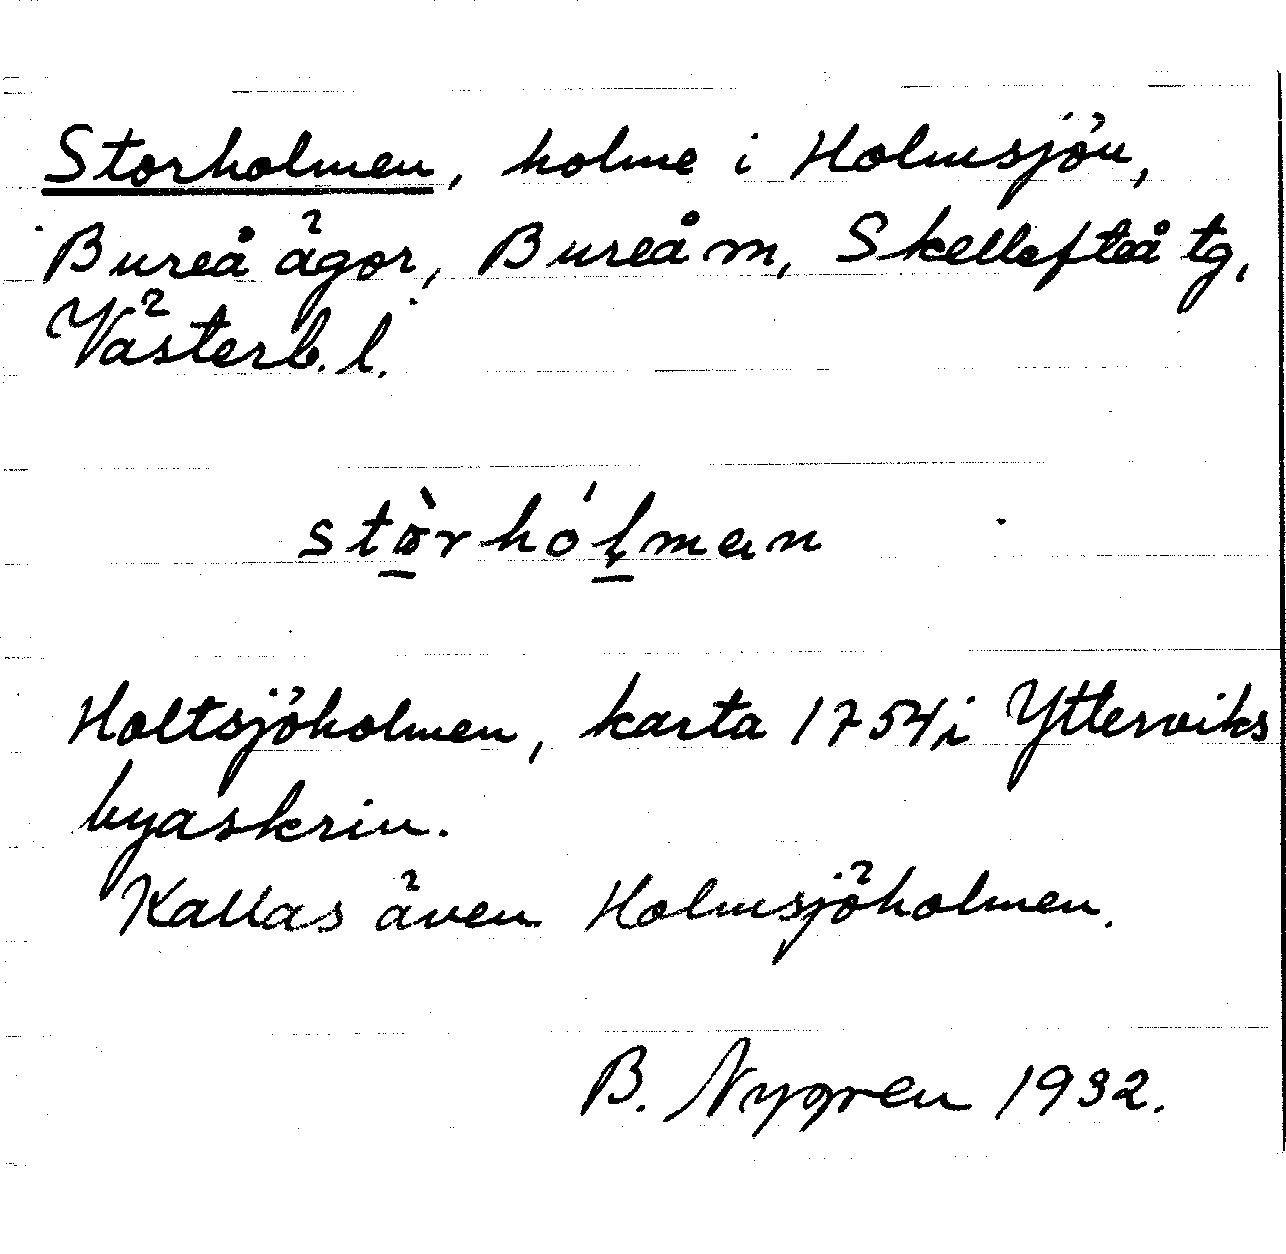 Storholmen, holme i Holmsjön,
Bureå ägor, Bureå m, Skellefteå tg,
Västerb. l.
stòrhóḷman
Holtsjöholmen, karta 1754 i Ytterviks
byaskrin.
Kallas även Holmsjöholmen.
B. Nygren 1932.